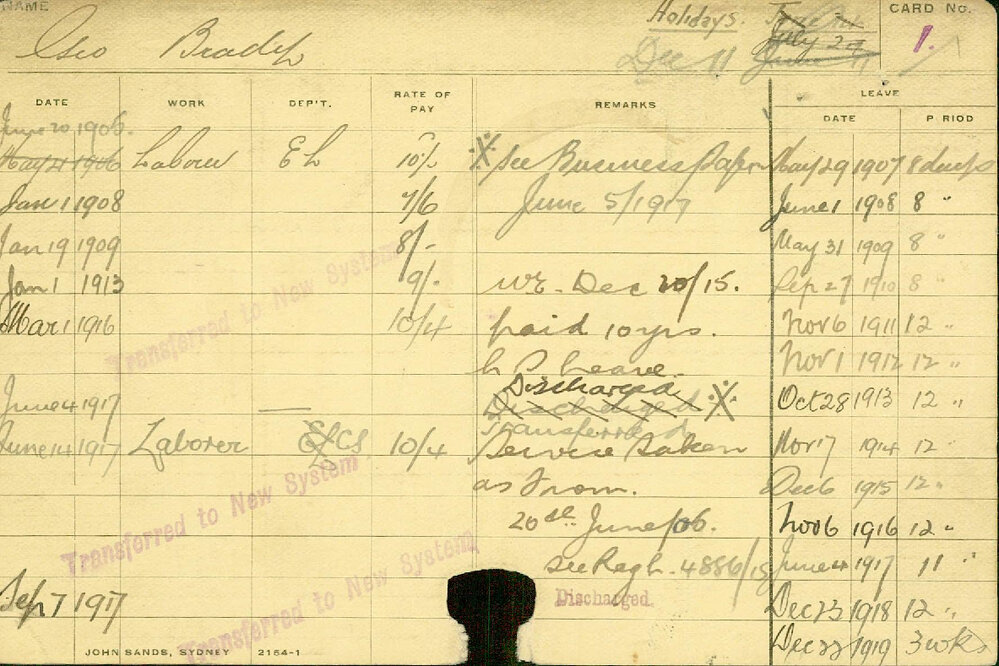 NAME
Geo Brady
Holidays.
Dec 11
July 29
June 11
CARD No.
1.
DATE WORK DEP'T. RATE OF PAY REMARKS LEAVE
DATE PERIOD
June 20 1906.
May 21 1906 Labour EL 10/- See Business Paper May 29 1907 8 days
Jan 1 1908 7/6 June 5/1917 June 1 1908 8 "
Jan 19 1909 8/- May 31 1909 8 "
Jan 1 1913 9/- WE. Dec 20/15. Sep 27 1910 8 "
Mar 1 1916 10/4 paid 10 yrs. Nov 6 1911 12 "
L P Leave. Nov 1 1912 12 "
Discharged
June 4 1917 — Discharged Oct 28 1913 12 "
Transferred
June 14 1917 Laborer ECS 10/4 Service taken Nov 17 1914 12 "
as from. Dec 6 1915 12 "
20th June/06. Nov 6 1916 12 "
See Regh. 4886/18 June 4 1917 11 "
Sep 7 1917 Discharged Dec 23 1918 12 "
Dec 22 1919 3 wks
Transferred to New System
Transferred to New System
Transferred to New System
JOHN SANDS, SYDNEY 2164-1